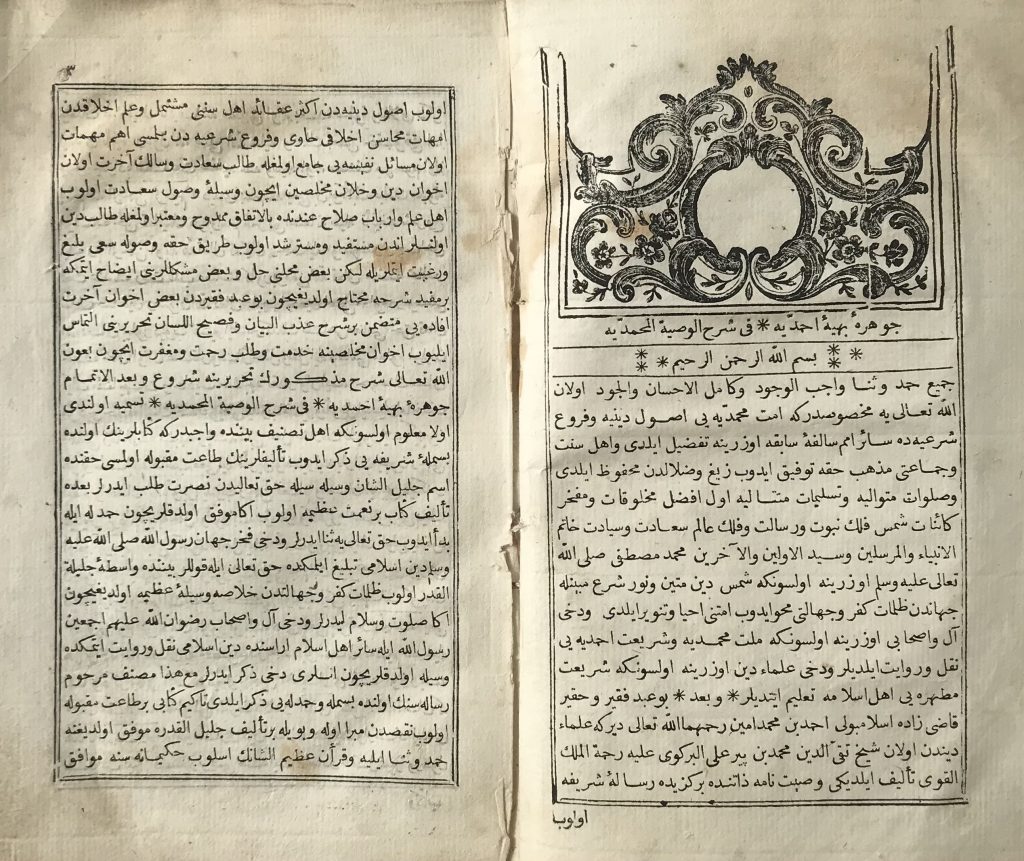 جوهرۀ بهیۀ احمدیه * فی شرح الوصیة المحمدیه
بسم الله الرحمن الرحیم
جمیع حمد و ثنا واجب الوجود و کامل الاحسان والجود اولان
الله تعالی یه مخصوصدرکه امت محمدیه یی اصول دینیه و فروع
شرعیه ده سائر امم سالفۀ سابقه اوزرینه تفضیل ایلدی واهل سنت
وجماعتی مذهب حقه توفیق ایدوب زیغ وضلالدن محفوظ ایلدی
وصلوات متوالیه وتسلیمات متتالیه اول افضل مخلوقات ومفخر
کائنات شمس فلك نبوت ورسالت وفلك عالم سعادت وسیادت خاتم
الانبیاء والمرسلین وسید الاولین والآخرین محمد مصطفی صلی الله
تعالی علیه وسلم اوزرینه اولسونکه شمس دین متین ونور شرع مبینله
جهاندن ظلمات کفر وجهالتی محوایدوب امتنی احیا وتنویرایلدی ودخی
آل واصحابی اوزرینه اولسونکه ملت محمدیه وشریعت احمدیه یی
نقل وروایت ایلدیلر ودخی علماء دین اوزرینه اولسونکه شریعت
مطهره یی اهل اسلامه تعلیم ایتدیلر * وبعد * بوعبد فقیر وحقیر
قاضی زاده اسلامبولی احمدبن محمدامین رحمهماالله تعالی دیرکه علماء
دیندن اولان شیخ تقی الدین محمدبن پیرعلی البرکوی علیه رحمة الملك
القوی تألیف ایلدیکی وصیت نامه ذاتنده برکزیده رسالۀ شریفه
اولوب
٣
اولوب اصول دینیه دن اکثر عقائد اهل سنتی مشتمل وعلم اخلاقدن
امهات محاسن اخلاقی حاوی وفروع شرعیه دن بیلمسی اهم مهمات
اولان مسائل نفیسه یی جامع اولمغله طالب سعادت وسالك آخرت اولان
اخوان دین وخلان مخلصین ایچون وسیلۀ وصول سعادت اولوب
اهل علم وارباب صلاح عندنده بالاتفاق ممدوح ومعتبراولمغله طالب دین
اولنلر اندن مستفید ومسترشد اولوب طریق حقه وصوله سعی بلیغ
ورغبت ایتدرلر لکن بعض محلنی حل وبعض مشکللرینی ایضاح ایتمکه
برمفید شرحه محتاج اولدیغیچون بوعبد فقیردن بعض اخوان آخرت
افاده یی متضمن برشرح عذب البیان وفصیح اللسان تحریرینی التماس
ایلیوب اخوان مخلصینه خدمت وطلب رحمت ومغفرت ایچون بعون
الله تعالی شرح مذکورك تحریرینه شروع وبعد الاتمام
جوهرۀ بهیۀ احمدیه * فی شرح الوصیة المحمدیه * تسمیه اولندی
اولا معلوم اولسونکه اهل تصنیف بیننده واجبدرکه کتابلرینك اولنده
بسملۀ شریفه یی ذکر ایدوب تألیفلرینك طاعت مقبوله اولمسی حقنده
اسم جلیل الشان وسیله سیله حق تعالیدن نصرت طلب ایدرلر بعده
تألیف کتاب برنعمت عظیمه اولوب اکاموفق اولدقلریچون حمدله ایله
بدأ ایدوب حق تعالی یه ثنا ایدرلر ودخی فخرجهان رسول الله صلی الله علیه
وسلم دین اسلامی تبلیغ ایلمکده حق تعالی ایله قوللر بیننده واسطۀ جلیلة
القدر اولوب ظلمات کفر وجهالتدن خلاصه وسیلۀ عظیمه اولدیغیچون
اکا صلوت وسلام ایدرلر ودخی آل واصحاب رضوان الله علیهم اجمعین
رسول الله ایله سائراهل اسلام اراسنده دین اسلامی نقل وروایت ایتمکده
وسیله اولدقلریچون انلری دخی ذکر ایدرلر مع هذا مصنف مرحوم
رساله سنك اولنده بسمله وحمدله یی ذکرایلدی تاکیم کتابی برطاعت مقبوله
اولوب نقصدن مبرا اوله وبویله برتألیف جلیل القدره موفق اولدیغنه
حمد وثنا ایلیه وقرآن عظیم الشانك اسلوب حکیمانه سنه موافق